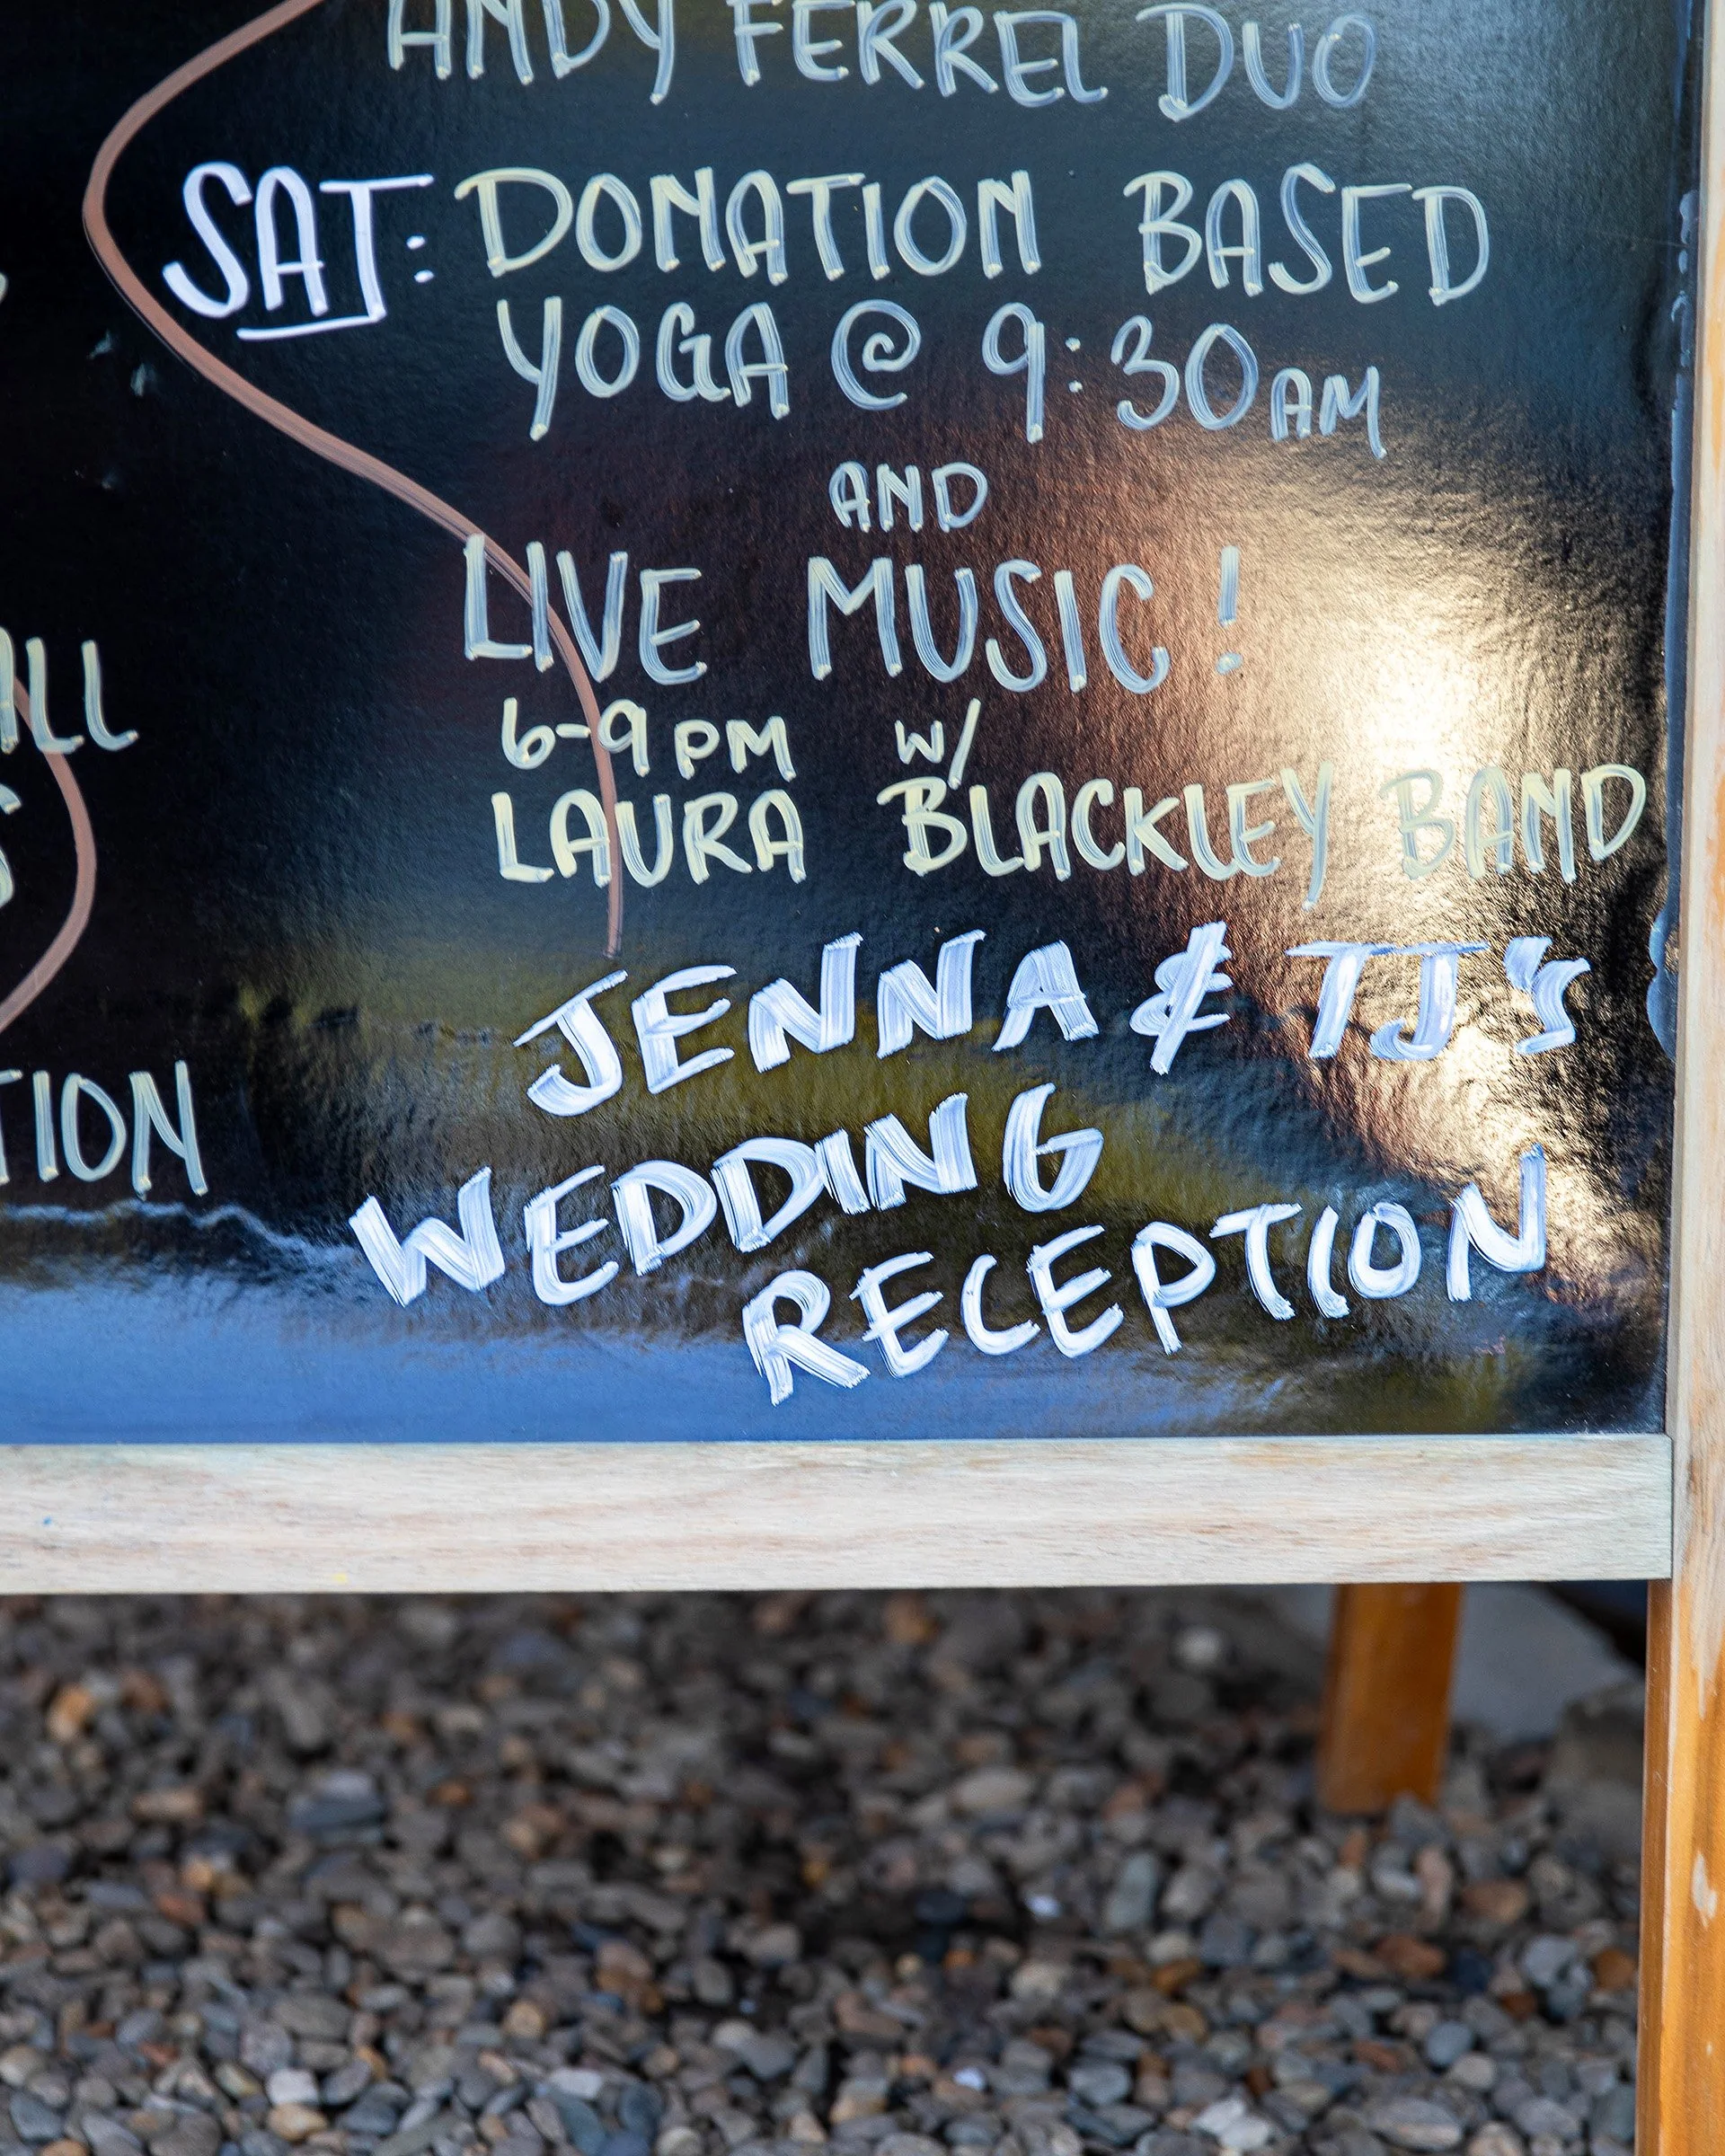 ANDY FERREL DUO
SAT: DONATION BASED
YOGA @ 9:30AM
AND
LIVE MUSIC!
6-9PM W/
LAURA BLACKLEY BAND
JENNA & TJ'S
WEDDING
RECEPTION
ALL
TION